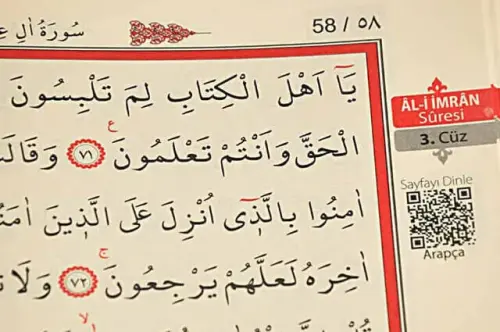 58 / ٥٨
سُورَةُ اٰلِ
يَٓا اَهْلَ الْكِتَابِ لِمَ تَلْبِسُونَ
الْحَقَّ وَاَنْتُمْ تَعْلَمُونَ ع ﴿٧١﴾ وَقَالَتْ
اٰمِنُوا بِالَّذٖٓي اُنْزِلَ عَلَى الَّذٖينَ اٰمَنُوا
اٰخِرَهُ لَعَلَّهُمْ يَرْجِعُونَ ج ﴿٧٢﴾ وَلَا
ÂL-İ İMRÂN
Sûresi
3. Cüz
Sayfayı Dinle
Arapça